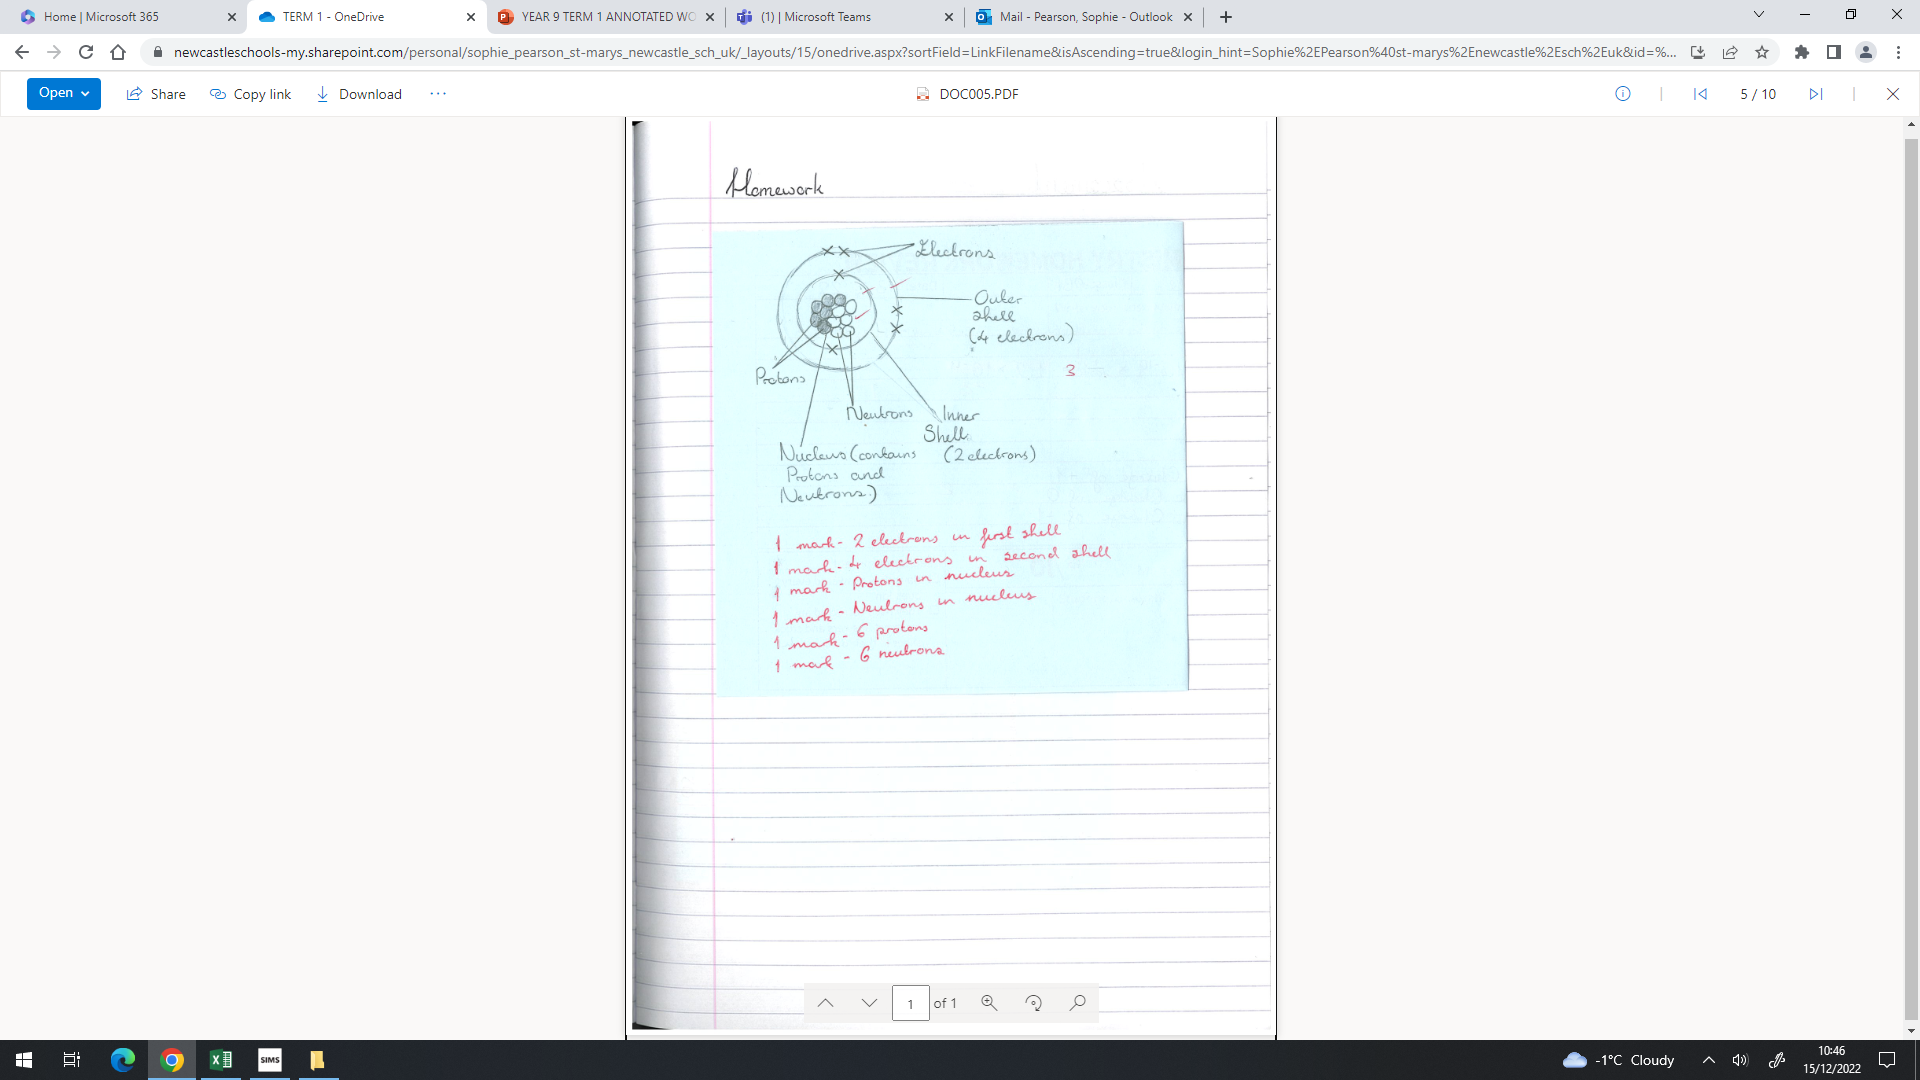 Home | Microsoft 365
TERM 1 - OneDrive
YEAR 9 TERM 1 ANNOTATED WO
(1) | Microsoft Teams
Mail - Pearson, Sophie - Outlook
newcastleschools-my.sharepoint.com/personal/sophie_pearson_st-marys_newcastle_sch_uk/_layouts/15/onedrive.aspx?sortField=LinkFilename&isAscending=true&login_hint=Sophie%2EPearson%40st-marys%2Enewcastle%2Esch%2Euk&id=%...
Open
Share
Copy link
Download
DOC005.PDF
5 / 10
Homework
Electrons
Outer
shell
(4 electrons)
3
Protons
Neutrons
Inner
Shell
(2 electrons)
Nucleus (contains
Protons and
Neutrons.)
1 mark - 2 electrons in first shell
1 mark - 4 electrons in second shell
1 mark - Protons in nucleus
1 mark - Neutrons in nucleus
1 mark - 6 protons
1 mark - 6 neutrons
1 of 1
SIMS
-1°C Cloudy
10:46
15/12/2022